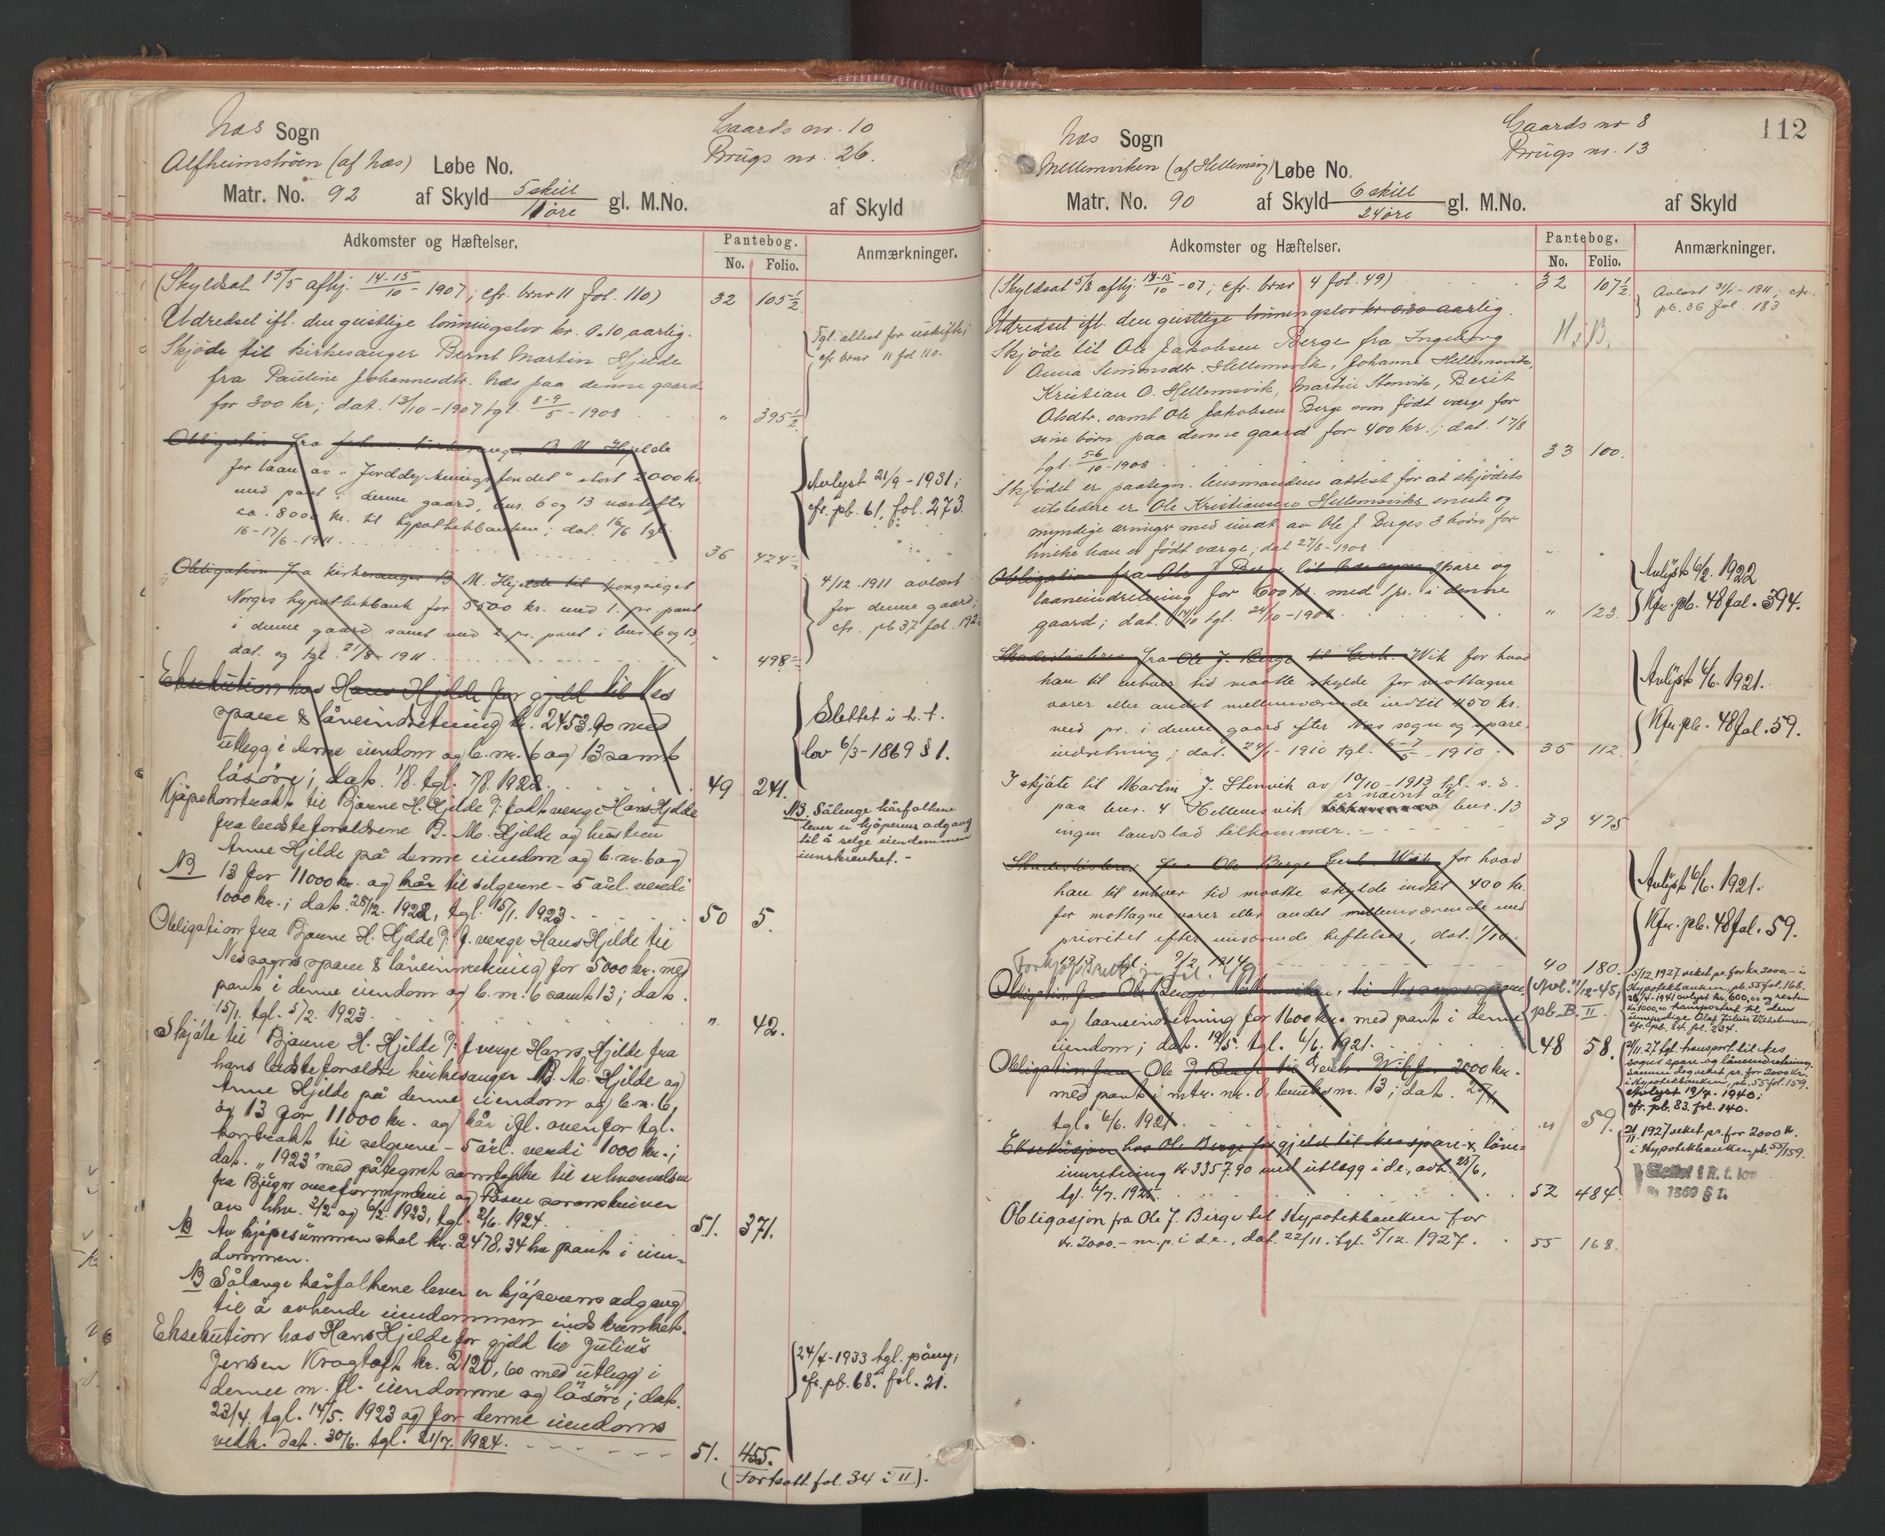 Næs Sogn
Gaards nr. 10
Alfheimstrøen (af Næs) Løbe No.
Brugs nr. 26.
Matr. No. 92 af Skyld 5 skill / 11 øre gl. M.No. af Skyld
Adkomster og Hæftelser.
Pantebog.
No. Folio.
Anmærkninger.
(Skyldsat 15/5 afhj. 14-15/10 - 1907; cfr. brnr 11 fol. 110) 32 105 1/2
Udredsel ifl. den geistlige lønningslov kr. 0.10 aarlig.
Tgl. attest for uskifte;
cfr. brnr 11 fol 110.
Skjøde til kirkesanger Bernt Martin Hjelde
fra Pauline Johannesdtr. Næs paa denne gaard
for 300 kr; dat. 13/10 - 1907 tgl. 8-9/5 - 1908 " 395 1/2
Obligation fra kirkesanger B. M. Hjelde
for laan av "Jorddyrkningsfondet" stort 2000 kr.
med pant i denne gaard, bnr. 6 og 13 næstefter
ca. 8000 kr. til hypothekbanken; dat. 16/6 tgl.
16-17/6 - 1911 36 424 1/2
Avlyst 21/9 - 1931;
cfr. pb. 61, fol. 273.
Obligation fra kirkesanger B. M. Hjelde til kongeriget
Norges hypothekbank for 5500 kr. med 1. pr. pant
i denne gaard samt med 2 pr. pant i bnr. 6 og 13,
dat. og tgl. 21/8 - 1911 " 498
4/12. 1911 avlæst
for denne gaard;
cfr. pb 37 fol. 192
Eksekution hos Hans Hjelde for gjeld til Nes
spare & låneindretning kr. 2453,90 med
utlegg i denne eiendom og b.nr. 6 og 13 samt
løsøre; dat. 1/8. tgl. 7/8. 1922. 49 241.
Slettet i h. t.
lov 6/3 - 1869 § 1.
Kjøpekontrakt til Bjarne H. Hjelde v: f. at verge Hans Hjelde
fra bedsteforældrene B. M. Hjelde og hustru
Anne Hjelde på denne eiendom og b.nr. 6 og
NB 13 for 11000 kr. og kår til selgerne - 5 årl. verdi
1000 kr.; dat. 28/12. 1922, tgl. 15/1. 1923. 50 5.
NB. Sålenge kårfolkene
lever er kjøperens adgang
til å selge eiendommen
innskrenket. -
Obligation fra Bjarne H. Hjelde v: f. verge Hans Hjelde til
Nes sogns spare & låneinnretning for 5000 kr. med
pant i denne eiendom og b.nr. 6 samt 13; dat.
15/1. tgl. 5/2. 1923. " 42.
Skjøte til Bjarne H. Hjelde v: f. verge Hans Hjelde fra
hans bedsteforældre kirkesanger B. M. Hjelde og
Anne Hjelde på denne eiendom og b.nr. 6,
og 13 for 11000 kr. og kår ifl. ovenfor tgl.
kontrakt til selgerne - 5 årl. verdi 1000 kr.;
dat. " 1923 med påtegnet samtykke til erhvervelsen
fra Bjugn overformynderi og Fosen sorenskriver
av hhv. 2/2 og 6/2. 1923, tgl. 2/6. 1924. 51. 371.
NB Av kjøpesummen skal kr. 2478,34 ha pant i eien-
dommen.
NB Sålænge kårfolkene lever er kjøperens adgang
til å avhende eiendommen indskrænket.
Eksekution hos Hans Hjelde for gjeld til Julius
Jensen Kragtoft kr. 2120,60 med utlegg i
denne m. fl. eiendomme og løsøre; dat.
23/4. tgl. 14/5. 1923 og for denne eiendoms
vedk. dat. 30/6. tgl. 21/7. 1924. 51. 455.
24/4 - 1933 tgl. påny;
cfr. pb. 68. fol. 21.
(Fortsatt fol. 34 i II).
112
Næs Sogn
Gaards nr 8
Mellemviken (af Hellemsvig) Løbe No.
Brugs nr. 13
Matr. No. 90 af Skyld 6 skill / 24 øre gl. M.No. af Skyld
Adkomster og Hæftelser.
Pantebog.
No. Folio.
Anmærkninger.
(Skyldsat 5/8 afhj. 14-15/10 - 07; cfr. brnr 4 fol. 49) 32 107 1/2
Avløst 3/1 - 1911; cfr.
pb. 36 fol. 183
Udredsel ifl. den geistlige lønningslov kr. 0.30 aarlig.
H. J. B.
Skjøde til Ole Jakobsen Berge fra Ingeborg
Anna Simonsdtr. Hellemsvik, Johanne Hellemsvik,
Kristian O. Hellemsvik, Martin Stenvik, Berit
Olsdtr. samt Ole Jakobsen Berge som født værge for
sine børn paa denne gaard for 400 kr.; dat. 17/8
tgl. 5-6/10 - 1908 33 100.
Skjødet er paategn. lensmandens attest for at skjødets
utstedere er Ole Kristiansens Hellemsviks eneste og
myndige arvinger med undt. av Ole J. Berges 3 børn for
hvilke han er født værge; dat 27/8 - 1908 "
Obligation fra Ole J. Berge til Næs sogns spare og
laaneindretning for 600 kr. med 1 pr. i denne
gaard; dat. 14/10 tgl. 24/10 - 1908 " 123.
Avlyst 6/2. 1922
Kfr. pb. 48 fol. 394.
Skadesløsbrev fra Ole J. Berge til Gerh. Wik for hvad
han til enhver tid maatte skylde for mottagne
varer eller andet mellemværende indtil 450 kr.
med pr. i denne gaard efter Næs sogn og spare-
indretning; dat. 24/1 - 1910 tgl. 6-7/5 - 1910 35 112.
Avlyst 6/6. 1921.
Kfr. pb. 48 fol. 59.
I skjøte til Martin J. Stenvik av 10/10 - 1913 tgl. s. d.
paa bnr. 4 Hellemsvik er nævnt at bnr. 13
ingen landslod tilkommer. - 39 475
Skadesløsbrev fra Ole Berge til Gerh. Wik for hvad
han til enhver tid maatte skylde indtil 400 kr.
for mottagne varer eller andet mellemværende med
prioritet efter nuværende heftelser; dat. 1/10.
1913 tgl. 9/2. 1914 40 180.
Avlyst 6/6. 1921.
Kfr. pb. 48 fol. 59.
Obligation fra Ole Berge, Mellemviken, til Nes sogns spare
og laaneindretning for 1600 kr. med pant i denne
eiendom; dat. 19/5. tgl. 6/6. 1921. 48 58.
Avl. 11/12-45,
pb. B. II
5/12. 1927 veket pr. for kr. 2000.- i
Hypotekbanken, pb. 55 fol. 168.
28/4-1941 avlyst kr. 600,00 og resten
kr. 1000,00 transportert til den
umyndige Olaf Julius Vilhelmsen,
cfr. pb. 84. fol. 234.
Obligation fra Ole J. Berge til Gerh. Wik for 2000 kr.
med pant i mtr. nr. 8, bruks nr. 13; dat. 27/4
tgl. 6/6. 1921. " 59.
21/11. 27 tgl. transport til Nes
sogns spare og låneinnretning.
samme dag veket pr. for 2000 kr.
i Hypotekbanken, pb. 55 fol. 159.
Avlyst 19/4. 1940;
cfr. pb. 83. fol. 140.
Eksekusjon hos Ole Berge for gjeld til Nes spare- & låne-
innretning kr. 3357.90 med utlegg i d.e., avh. 25/6,
tgl. 6/7. 1925. 52 484.
21/11 1927 veket pr. for 2000 kr.
i Hypotekbanken pb. 55/159.
Slettet i h. t. lov
1869 § 1.
Obligasjon fra Ole J. Berge til Hypotekbanken for
kr. 2000.- m. p. i d.e., dat. 22/11. tgl. 5/12. 1927. 55 168.